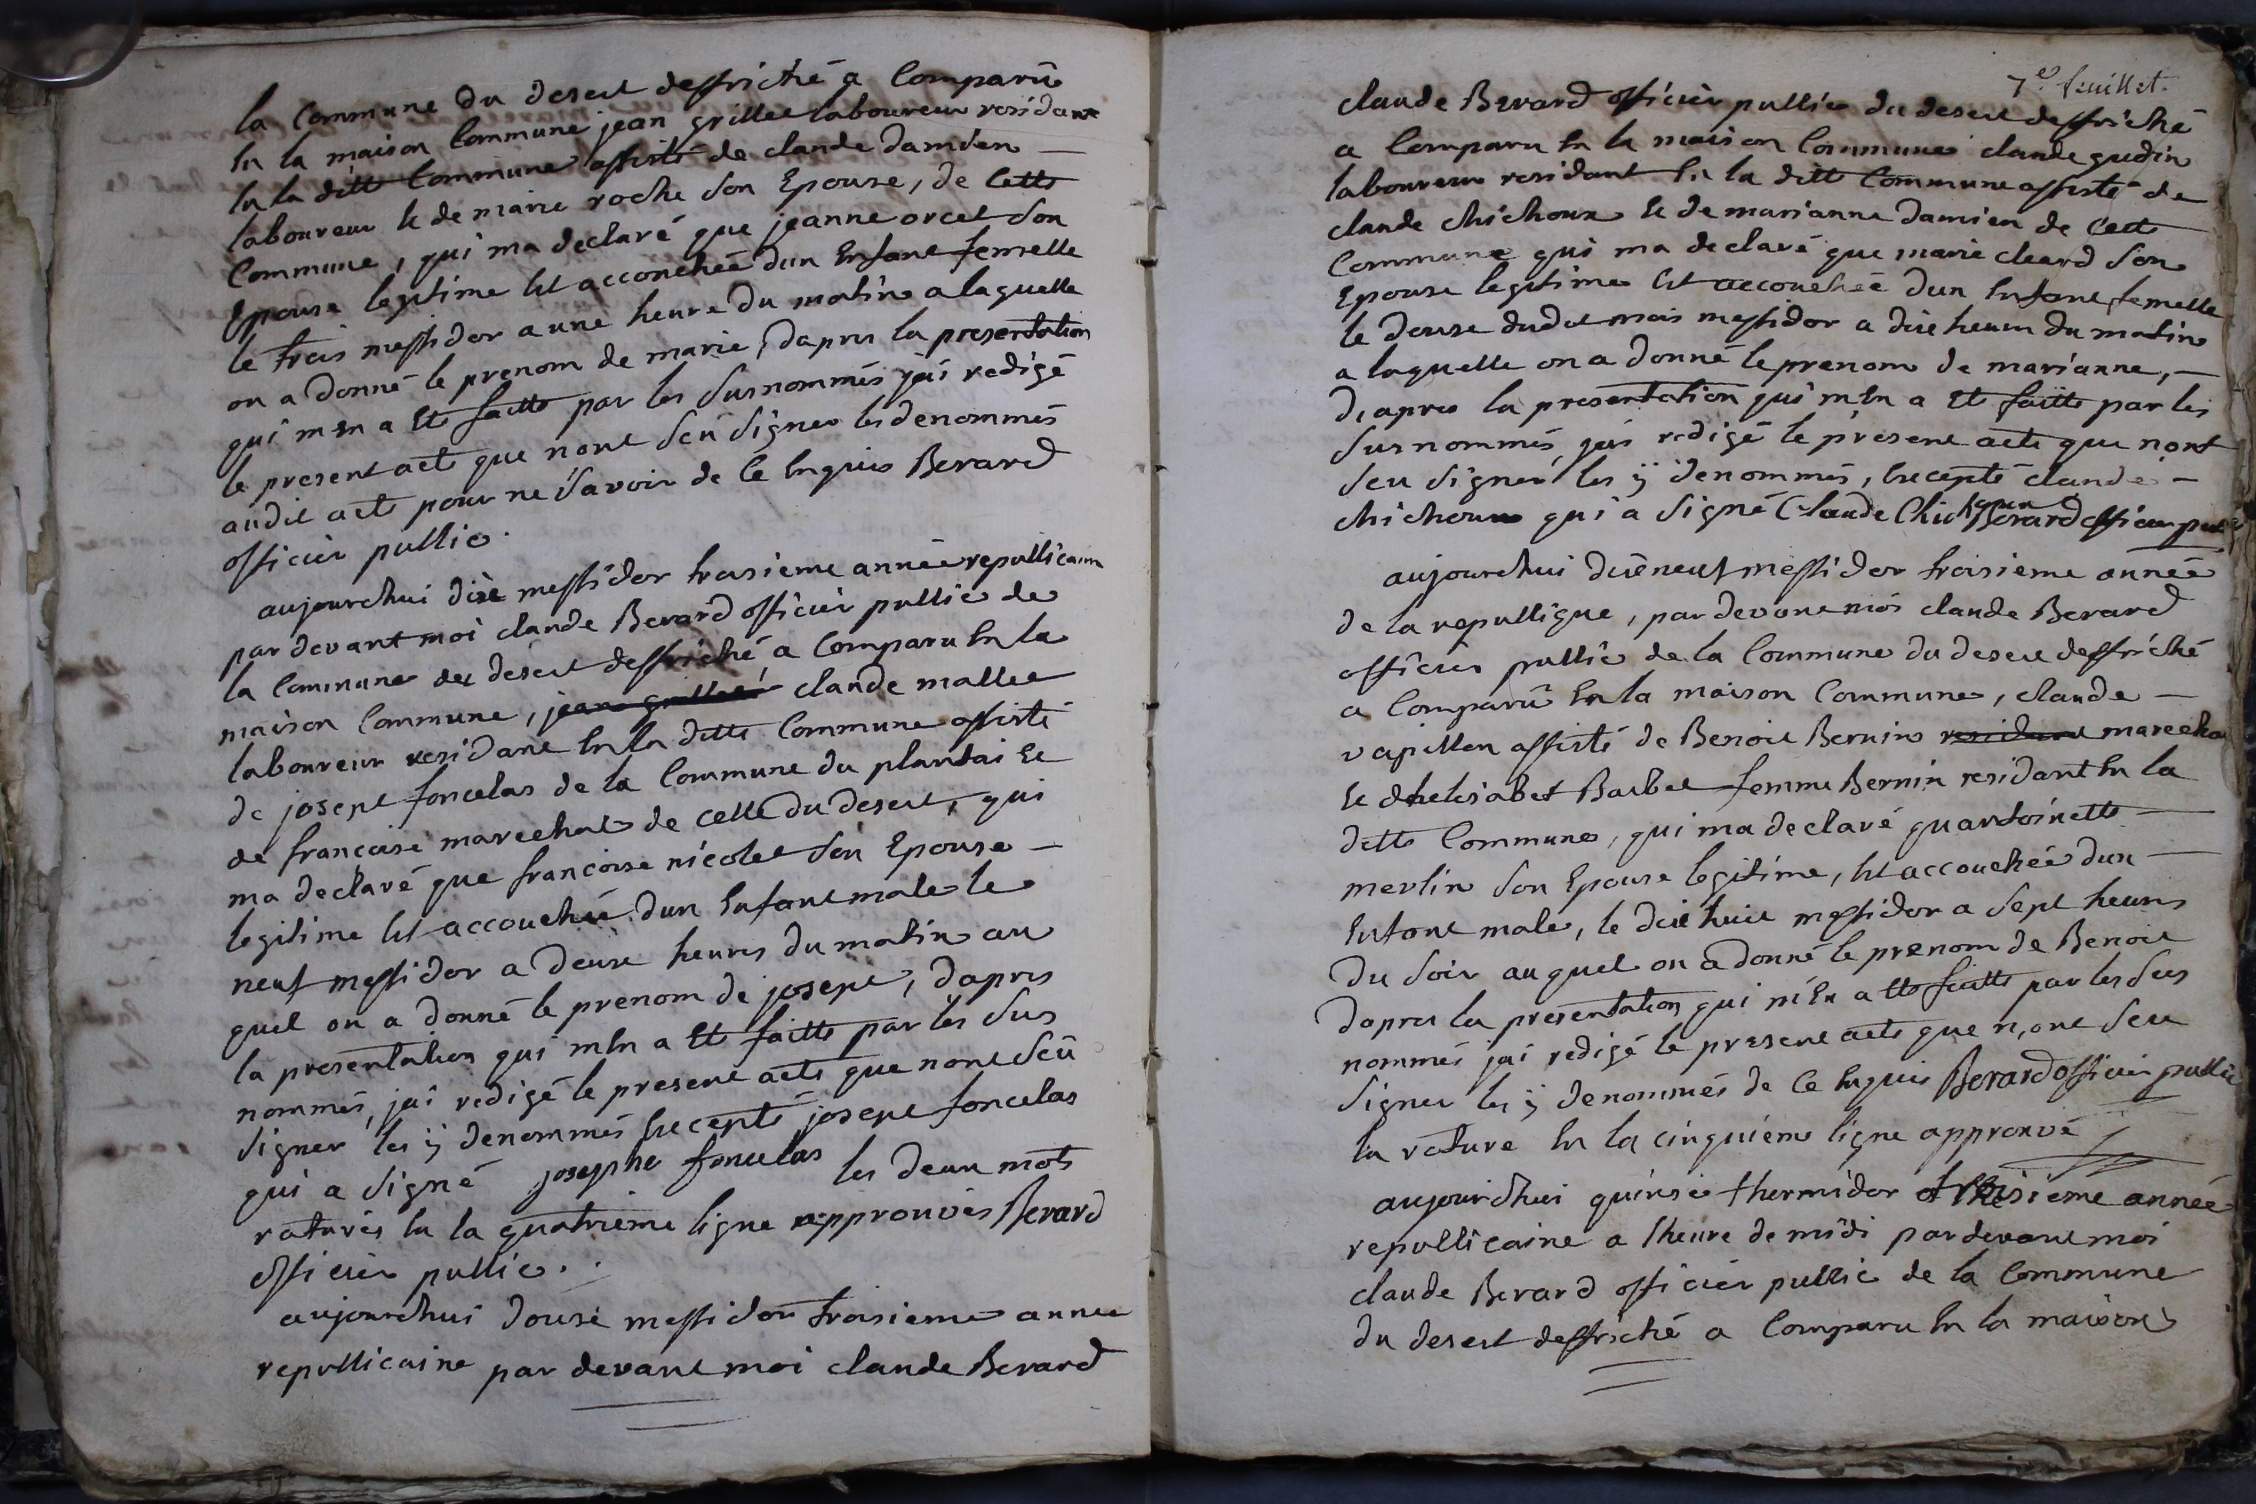 la Commune du desert deffriché a Comparû
En la maison Commune jean grillet laboureur residant
En la ditte Commune assisté de claude damien —
laboureur Et de marie roche son Epouse, de Cette
Commune, qui ma declaré que jeanne orcet son
Epouse legitime Est accouchée dun Enfant femelle
le trois messidor a une heure du matin a laquelle
on a donné le prenom de marie, dapres la presentation
qui mEn a Ete faitte par les susnommés jai redigé
le present acte que nont sçu signer les denommés
audit acte pour ne savoir de ce Enquis Berard
officier pullic.
aujourdhui dixe messidor troisieme année repullicaine
par devant moi claude Berard officier pullic de
la Commune du desert deffriché, a Comparu En la
maison Commune, jean grillet claude mallet
laboureur residant En la ditte Commune assisté
de josept foncelas de la Commune du plantai Et
de françoise marechat de celle du desert, qui
ma declaré que françoise nicolet son Epouse —
legitime Est accouchée dun Enfant male le
neuf messidor a deuxe heures du matin au
quel on a donné le prenom de josept, dapres
la presentation qui mEn a Ete faitte par les sus
nommés, jai redigé le present acte que nont seû
signer les ÿ denommés Excepté josept foncelas
qui a signé josephe foncelas les deux mots
raturés En la quatrieme ligne approuvés Berard
officier pullic..
aujourdhui douse messidor troisieme annee
repullicaine par devant moi claude Berard
7e. feuillet.
claude Berard officier pullic du desert deffriché
a Comparu En la maison Commune claude gudin
laboureur residant En la ditte Commune assisté de
claude chichoux Et de marianne damien de Cette
Commune qui ma declaré que marie cleard son
Epouse legitime Est accouchée dun Enfant femelle
le douse dudit mois messidor a dixe heures du matin
a laquelle on a donné le prenom de marianne, —
d,apres la presentation qui mEn a Ete faitte par les
susnommés, jai redigé le present acte que nont
seu signer les ÿ denommés, Excepté claude —
chichoux qui a signé Claude Chichoux Berard officier pul
aujourdhui dixeneuf messidor troisieme année
de la repullique, par devant moi claude Berard
officier pullic de la Commune du desert deffriché
a Comparû En la maison Commune, claude —
vapillon assisté de Benoit Bernin residant marecha
Et dhelisabet Barbet femme Bernin residant En la
ditte Commune, qui ma declaré quantoinette —
merlin son Epouse legitime, Est accouchée dun —
Enfant male, le dixe huit messidor a sept heures
du soir auquel on a donné le prenom de Benoit
dapres la presentation qui m'En a Ete faitte par les sus
nommés jai redigé le present acte que n,ont seu
signer les ÿ denommés de ce Enquis Berard officier pullic
la rature En la cinquieme ligne approuvé
aujourdhui quinse thermidor troisieme année
repullicaine a lheure de midi pardevant moi
claude Berard officier pullic de la Commune
du desert deffriché a Comparu En la maison